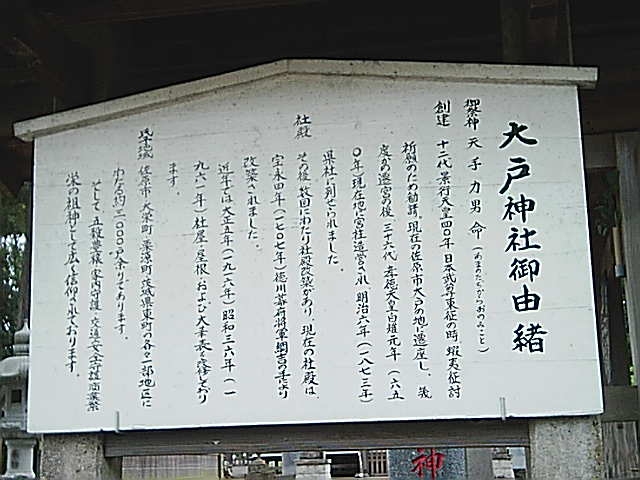 大戸神社御由緒
御祭神 天手力男命(あまのたぢからおのみこと)
創建 十二代景行天皇四〇年日本武尊東征の時 蝦夷征討
祈願のため勧請。現在の佐原市大戸の地に遷座し、幾
度かの遷宮の後 三十六代 孝徳天皇白雉元年(六五
〇年)現在地に宮柱造営され、明治六年(一八七三年)
県社に列せられました。
社殿 その後 数回にわたり社殿改築があり、現在の社殿は
宝永四年(一七〇七年)徳川幕府将軍綱吉の手により
改築されました。
近年では大正五年(一九一六年)昭和三六年(一
九六一年)社屋(屋根)および大半を修しており
ます。
氏子地域 佐原市、大栄町、栗源町、茨城県東町の各々一部地区に
わたり約三〇〇〇戸余りであります。
そして、五穀豊穣、室内守護、交通安全守護、商業繁
栄の祖神として広く信仰されております。
神